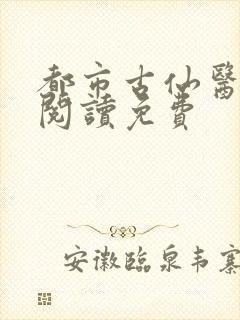 都市古仙醫
閱讀免費
安徽臨泉韦寨